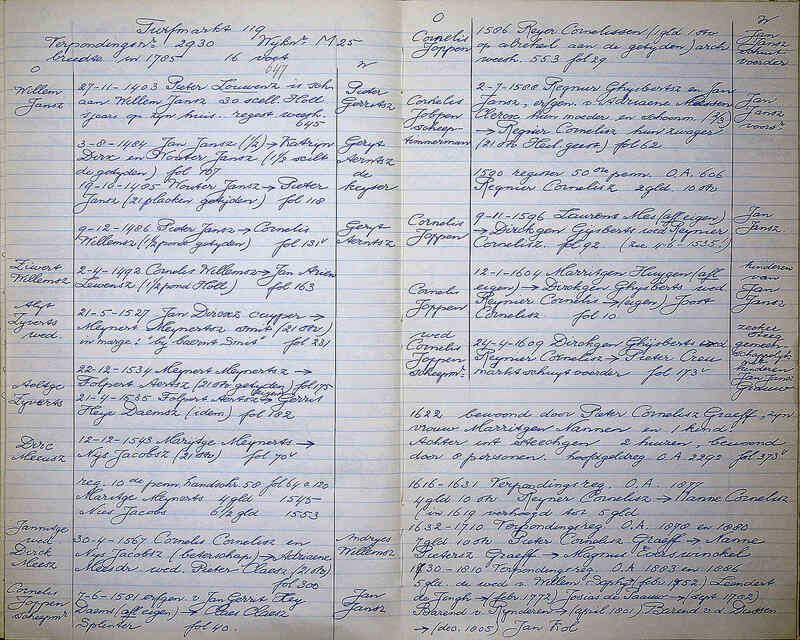 Turfmarkt 119
Verpondingsnr 2930 Wijknr M 25
breedte in 1785 16 voet
647
O W
Willem Jansz
27-11-1403 Pieter Louwenz is sch.
aan Willem Jansz 30 scell. Holl
sjaars op zijn huis. regest weesh.
645
Pieter Gerritsz
3-8-1484 Jan Jansz (1/2) → Katryn
Dirx en Wouter Jansz (1 1/2 scilt
de getyden) fol 107
Geryt Aerntsz de keyser
19-10-1485 Wouter Jansz → Pieter
Jansz (21 placken getyden) fol 118
9-12-1486 Pieter Jansz → Cornelis
Willemsz (1/2 pond getyden) fol 131v
Geryt Aerntsz
Ziwert Willemsz
2-4-1492 Cornelis Willemsz → Jan Arien
Lewensz (1/2 pond Holl) fol 163
Alyt Zyverts wed.
21-5-1527 Jan Dircxz cuyper →
Meynert Meynertsz smit (21 st)
in marge: "by baernt smit" fol 231
22-12-1534 Meynert Meynertsz →
Folpert Aertsz (21 st getyden) fol 75
Aeltge Zyverts
21-4-1535 Folpert Aertsz → Gerrit
Heye Daemsz (idem) fol 102
Dirc Meeusz
12-12-1543 Marytge Meynerts →
Nys Jacobsz (21 st) fol 70v
reg. 10de penn. handschr. 58 fol 64 a 120
Maritge Meynerts 4 gld 1545
Nies Jacobs 6 1/2 gld 1553
Jannitge wed Dirck Meesz
30-4-1567 Cornelis Cornelisz en
Nys Jacobsz (beterschap) → Adriaene
Meesdr. wed. Pieter Claesz (21 st)
fol 300
Andryes Willemsz
Cornelis Joppen Jansz
7-6-1581 erfgen. v Jan Gerrit Hey
Daems (aff eigen) → Claes Claesz
Splinter fol 40.
Jan Jansz
O W
Cornelis Joppen
1586 Reyer Cornelissen (1 gld 1 st
op abreheil aan de getyden) arch
weesh. 553 fol 29
Jan Jansz schuit voerder
Cornelis Joppen scheep timmerman
2-7-1588 Regnier Ghysbertsz en Jan
Jansz, erfgen. v Adriaene Meessen
Clercx hun moeder en schoonm. (2/3)
→ Regnier Cornelisz hun zwager
(21 st Heel geest) fol 62
Jan Jansz voorsr
1590 register 50ste penn. O.A. 606
Regnier Cornelisz 2 gld. 10 st
Cornelis Joppen
9-11-1596 Laurens Mees (aff eigen)
→ Dirckgen Gysberts wed Reynier
Cornelisz. fol 92. (zie 4-2-1535!)
Jan Jansz.
Cornelis Joppen
12-1-1604 Marritgen Huygen (aff
eigen) → Dirckgen Ghysberts wed
Reynier Cornelis → (eigen) Joost
Cornelisz fol 10
kinderen van Jan Jansz
wed Cornelis Joppen scheepmr
24-4-1609 Dirckgen Ghijsberts wed
Reymer Cornelisz → Pieter Creu
marktschuytvoerder fol 173v
kinderen Jan Jansz
1622 bewoond door Pieter Cornelisz Graeff, zyn
vrouw Marritgen Nannen en 1 kind
Achter int steechgen 2 huuren, bewoond
door 8 personen. hooftgeldreg O.A 2292 fol 373v
1616-1631 Verpondingsreg. O.A. 1877
4 gld 10 st Reyner Cornelisz → Nanne Cornelisz
in 1619 verhoogd tot 5 gld
1632-1710 Verpondingsreg. O.A. 1878 en 1880
7 gld 10 st Pieter Cornelisz Graeff → Nanne
Pietersz Graeff → Magnus Everswinckel
1730-1810 Verpondingsreg. O.A. 1883 en 1886
5 gld. de wed v Willem Daphn (febr 1752) Leendert
de Jongh → (febr 1772) Josias de Paauw → (sept 1782)
Barend v. Rynderen → (april 1801) Barend v.d. Dussen
→ (dec. 1805) Jan Kol